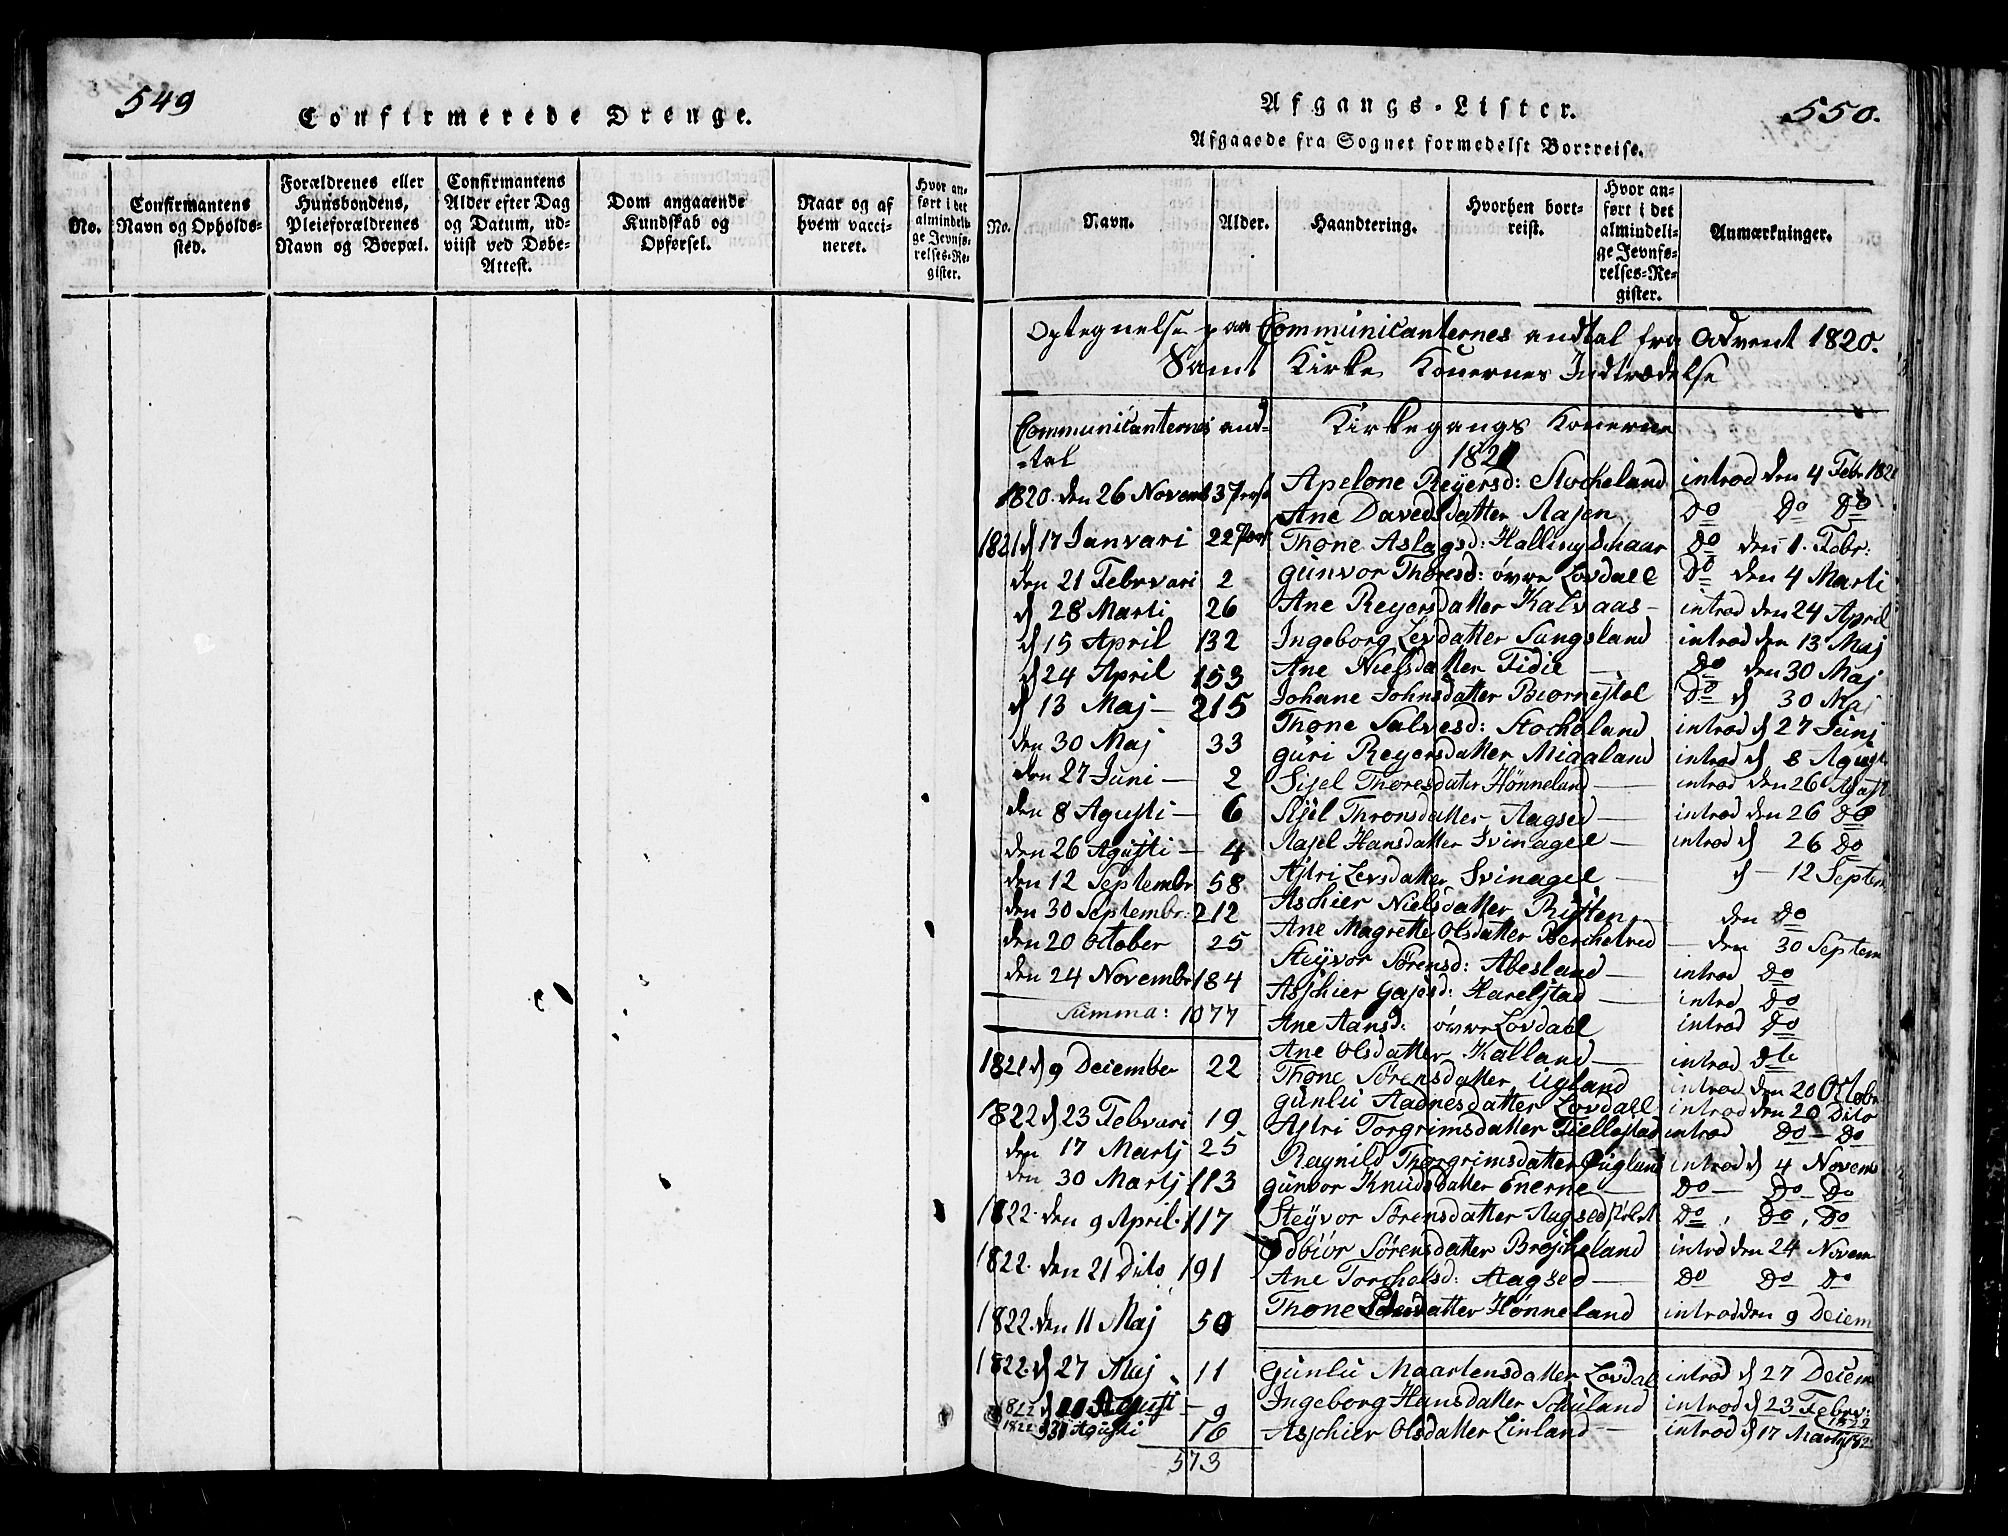 549
Confirmerede Drenge.
No.
Confirmantens Navn og Opholdssted.
Forældrenes eller Huusbondens, Pleieforældrenes Navn og Boepæl.
Confirmantens Alder efter Dag og Datum, udviist ved Døbe-Attest.
Dom angaaende Kundskab og Opførsel.
Naar og af hvem vaccineret.
Hvor anført i det almindelige Jevnførelses-Register.
550.
Afgangs-Lister.
Afgaaede fra Sognet formedelst Bortreise.
No.
Navn.
Alder.
Haandtering.
Hvorhen bortreist.
Hvor anført i det almindelige Jevnførelses-Register.
Anmærkninger.
Optegnelse paa Communicanternes andtal fra Advent 1820.
Samt Kirke Konernes Indtrædelse
Communicanternes and-
-tal
1820. den 26 Novemb 37 pers
1821 d 17 Ianvari 22 Pers
den 21 Febrvari 2
d 28 Marti 26
d 15 April 132
d 24 April 153
d 13 Maj - 215
den 30 Maj 33
den 27 Juni - 2
den 8 Agusti - 6
den 26 Agusti - 4
den 12 Septembr 58
den 30 Septembr: 212
den 20 October 25
den 24 Novembr 184
Summa: 1077
1821 d 9 Deiember 22
1822 d 23 Febvari 19
den 17 Martj 25
den 30 Martj 113
1822. den 9 April. 117
1822. den 21 Dito 191
1822. den 11 Maj 50
1822. d 27 Maj 11
1822 d Agust - 9
1822 Agusti 16
573
Kirkegangs Konerne
1821
Apelone Reyersd: Stocheland introd den 4 Febr 1821
Ane Davedsdatter Aasen Do Do Do
Thone Aslagsd: Hallingschaar Do den 1. Febr:
Gunvor Thoresd: øvre Lovdall Do den 4 Marti
Ane Reyersdatter Kalvaas - introd den 24 April
Ingeborg Levdatter Sangsland introd den 13 Maj
Ane Nielsdatter Fidie - Do den 30 Maj
Johane Johnsdatter Biornestøl Do d 30 Maj
Thone Salvesd: Stocheland introd d 27 Junj
Guri Reyersdatter Migaland introd d 8 Agust
Sisel Thoresdater Hønneland - introd den 26 Agust
Sisel Thronsdatter Aagsed - introd den 26 Do
Rasel Hansdatter Svinagel - introd d 26 Do
Astri Levsdatter Svinagel - d - 12 Septem
Aschier Nielsdatter Rysten - den Do
Ane Magrette Olsdatter Berchelred - den 30 Septem
Steyvor Sørensd: Abesland - introd Do
Aschier Gajesd: Harelstad - introd Do
Ane Aansd: øvre Lovdahl introd Do
Ane Olsdatter Kalland - introd dto
Thone Sørensdatter Ugland introd den 20 Octobr
Gunlu Aadnesdatter Lovdall introd den 20 Dito
Astri Torgrimsdatter Fiellestad introd Do - Do
Ragnild Thorgrimsdatter Øugland introd d 4 Novem
Gunvor Knudsdatter Enerne - Do - Do Do
Steyvor Sørensdatter Aagsed Do, Do, Do
Odbiør Sørensdatter Broscheland introd den 24 Novem
Ane Torcholsd: Aagsed - Do Do Do
Thone datter Hønneland introd den 9 Deiem
Gunlu Maartensdatter Lovdal introd d 27 Deiem
Ingeborg Hansdatter Schuland introd d 23 Febrv: 1822
Aschier Olsdatter Linland - introd d 17 Martj 182